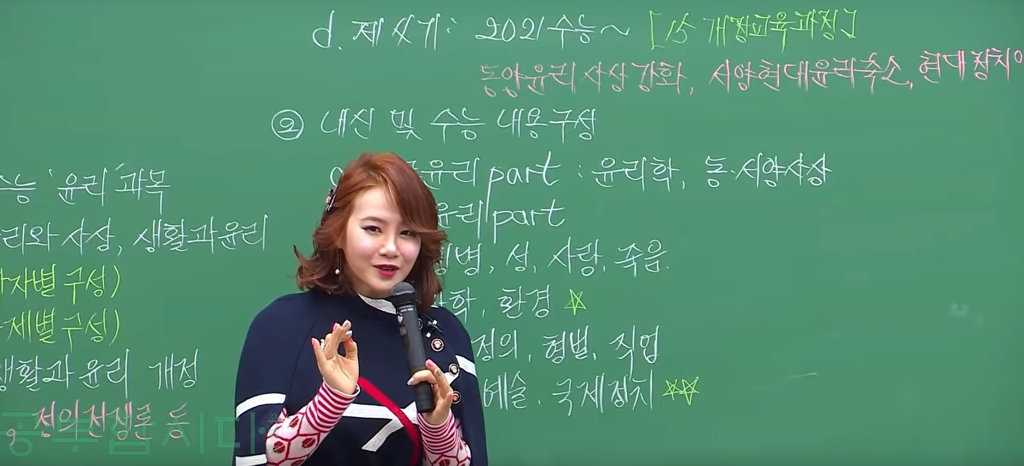 d. 제4기: 2021수능~ [15 개정교육과정]
동양윤리사상강화, 서양현대윤리축소, 현대정치
② 내신 및 수능 내용구성
윤리part : 윤리학, 동·서양사상
윤리part
병, 성, 사랑, 죽음.
학, 환경 ☆
정의, 형벌, 직업
예술, 국제정치 ☆☆
수능 '윤리' 과목
윤리와 사상, 생활과윤리
자별 구성)
제별 구성)
생활과 윤리 개정
정의전쟁론 등
공부합시다
7